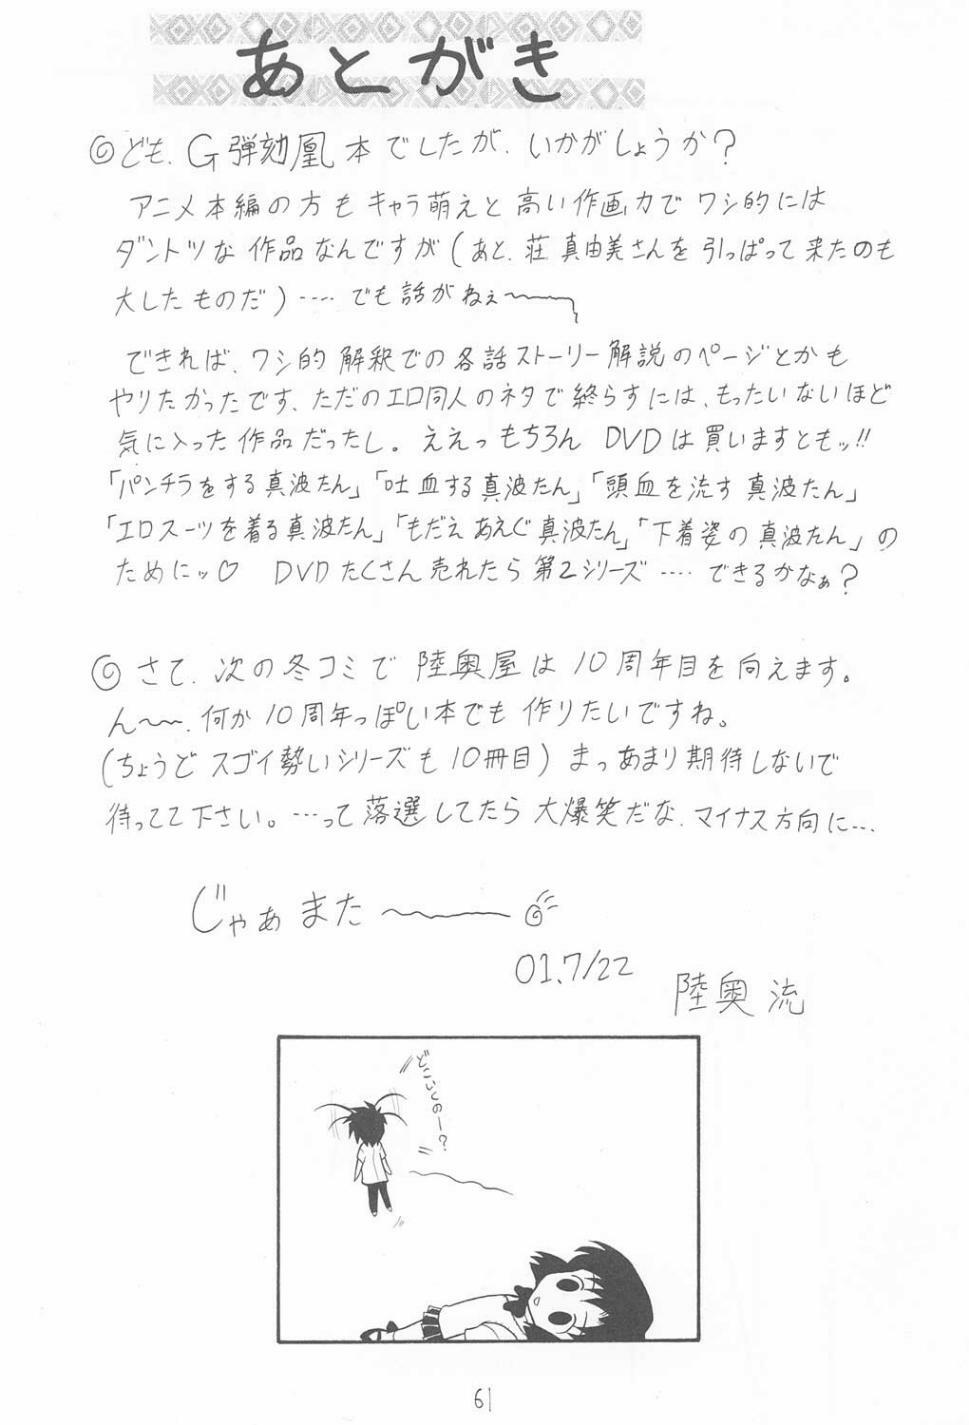 あとがき
◎ども、G弾劾凰本でしたが、いかがしょうか?
アニメ本編の方もキャラ萌えと高い作画力でワシ的には
ダントツな作品なんですが(あと、荘真由美さんを引っぱって来たのも
大したものだ)‥‥でも話がねぇ〜
できれば、ワシ的解釈での各話ストーリー解説のページとかも
やりたかったです、ただのエロ同人のネタで終らすには、もったいないほど
気に入った作品だったし。ええっもちろんDVDは買いますともッ!!
「パンチラをする真波たん」「吐血する真波たん」「頭血を流す真波たん」
「エロスーツを着る真波たん」「もだえあえぐ真波たん」「下着姿の真波たん」の
ためにッ♡ DVDたくさん売れたら第2シリーズ‥‥できるかなぁ?
◎さて、次の冬コミで陸奥屋は10周年目を向えます。
ん〜〜、何か10周年っぽい本でも作りたいですね。
(ちょうどスゴイ勢いシリーズも10冊目)まっあまり期待しないで
待ってて下さい。…って落選してたら大爆笑だな、マイナス方向に…
じゃあまた〜
01.7/22
陸奥流
どこいくのー?
61